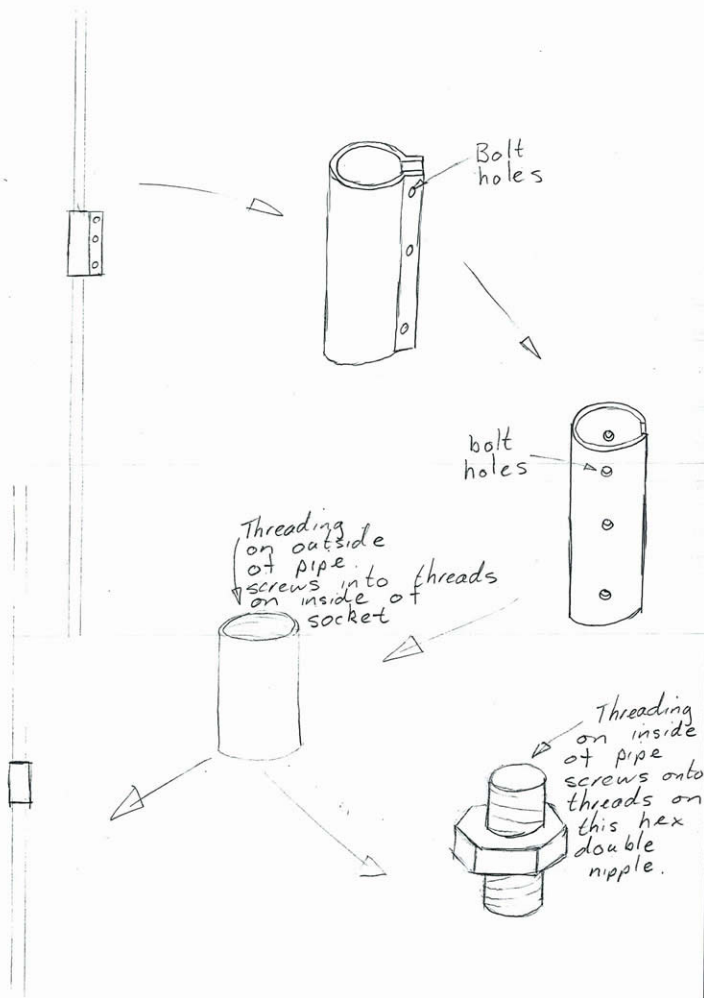 Bolt
holes
bolt
holes
Threading
on outside
of pipe.
screws into threads
on inside of
socket
Threading
on inside
of pipe
screws onto
threads on
this hex
double
nipple.